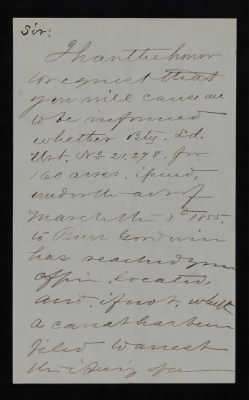 Sir:
I have the honor
to request that
you will cause me
to be informed
whether Bty. Ld.
Wrt. No. 21,278, for
160 acres, issued,
under the act of
March the 3d 1855,
to Burr Goodwin
has reached your
office, located,
and, if not, whether
a caveat has been
filed to arrest
the issuing of a